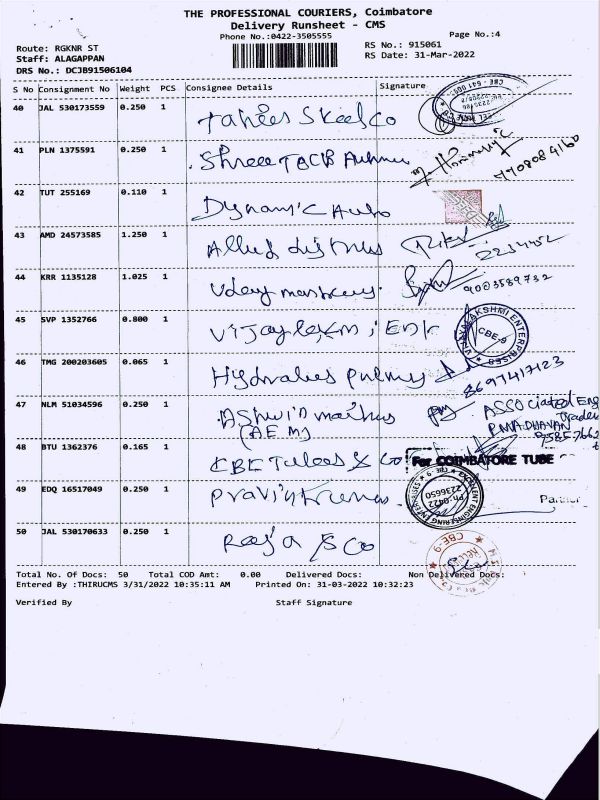 THE PROFESSIONAL COURIERS, Coimbatore
Delivery Runsheet - CMS
Phone No.:0422-3505555
Page No.:4
Route: RGKNR ST
RS No.: 915061
Staff: ALAGAPPAN
RS Date: 31-Mar-2022
DRS No.: DCJB91506104
S No Consignment No Weight PCS Consignee Details Signature
40 JAL 530173559 0.250 1 Steel Co
41 PLN 1375591 0.250 1 Shree
42 TUT 255169 0.110 1 Dynamic Auto
43 AMD 24573585 1.250 1 Allied
44 KRR 1135128 1.025 1 Uday
9003589732
45 SVP 1352766 0.800 1 Vijaylaxmi
VIJAYALAKSHMI ENTERPRISES CBE-9
46 TMG 200203605 0.065 1
8697417123
47 NLM 51034596 0.250 1 Ashwin
(A.E.M) ASSOCIATED Eng Traders
P. MADHAVAN
48 BTU 1362376 0.165 1 CBE Tubes & Co
For COIMBATORE TUBE
49 EDQ 16517049 0.250 1 Pravin
EXCELLENT ENGINEERING ENTERPRISES Ph:0422 2236650
Partner
50 JAL 530170633 0.250 1 Raja & Co
CBE-9
Total No. Of Docs: 50 Total COD Amt: 0.00 Delivered Docs: Non Delivered Docs:
Entered By :THIRUCMS 3/31/2022 10:35:11 AM Printed On: 31-03-2022 10:32:23
Verified By Staff Signature